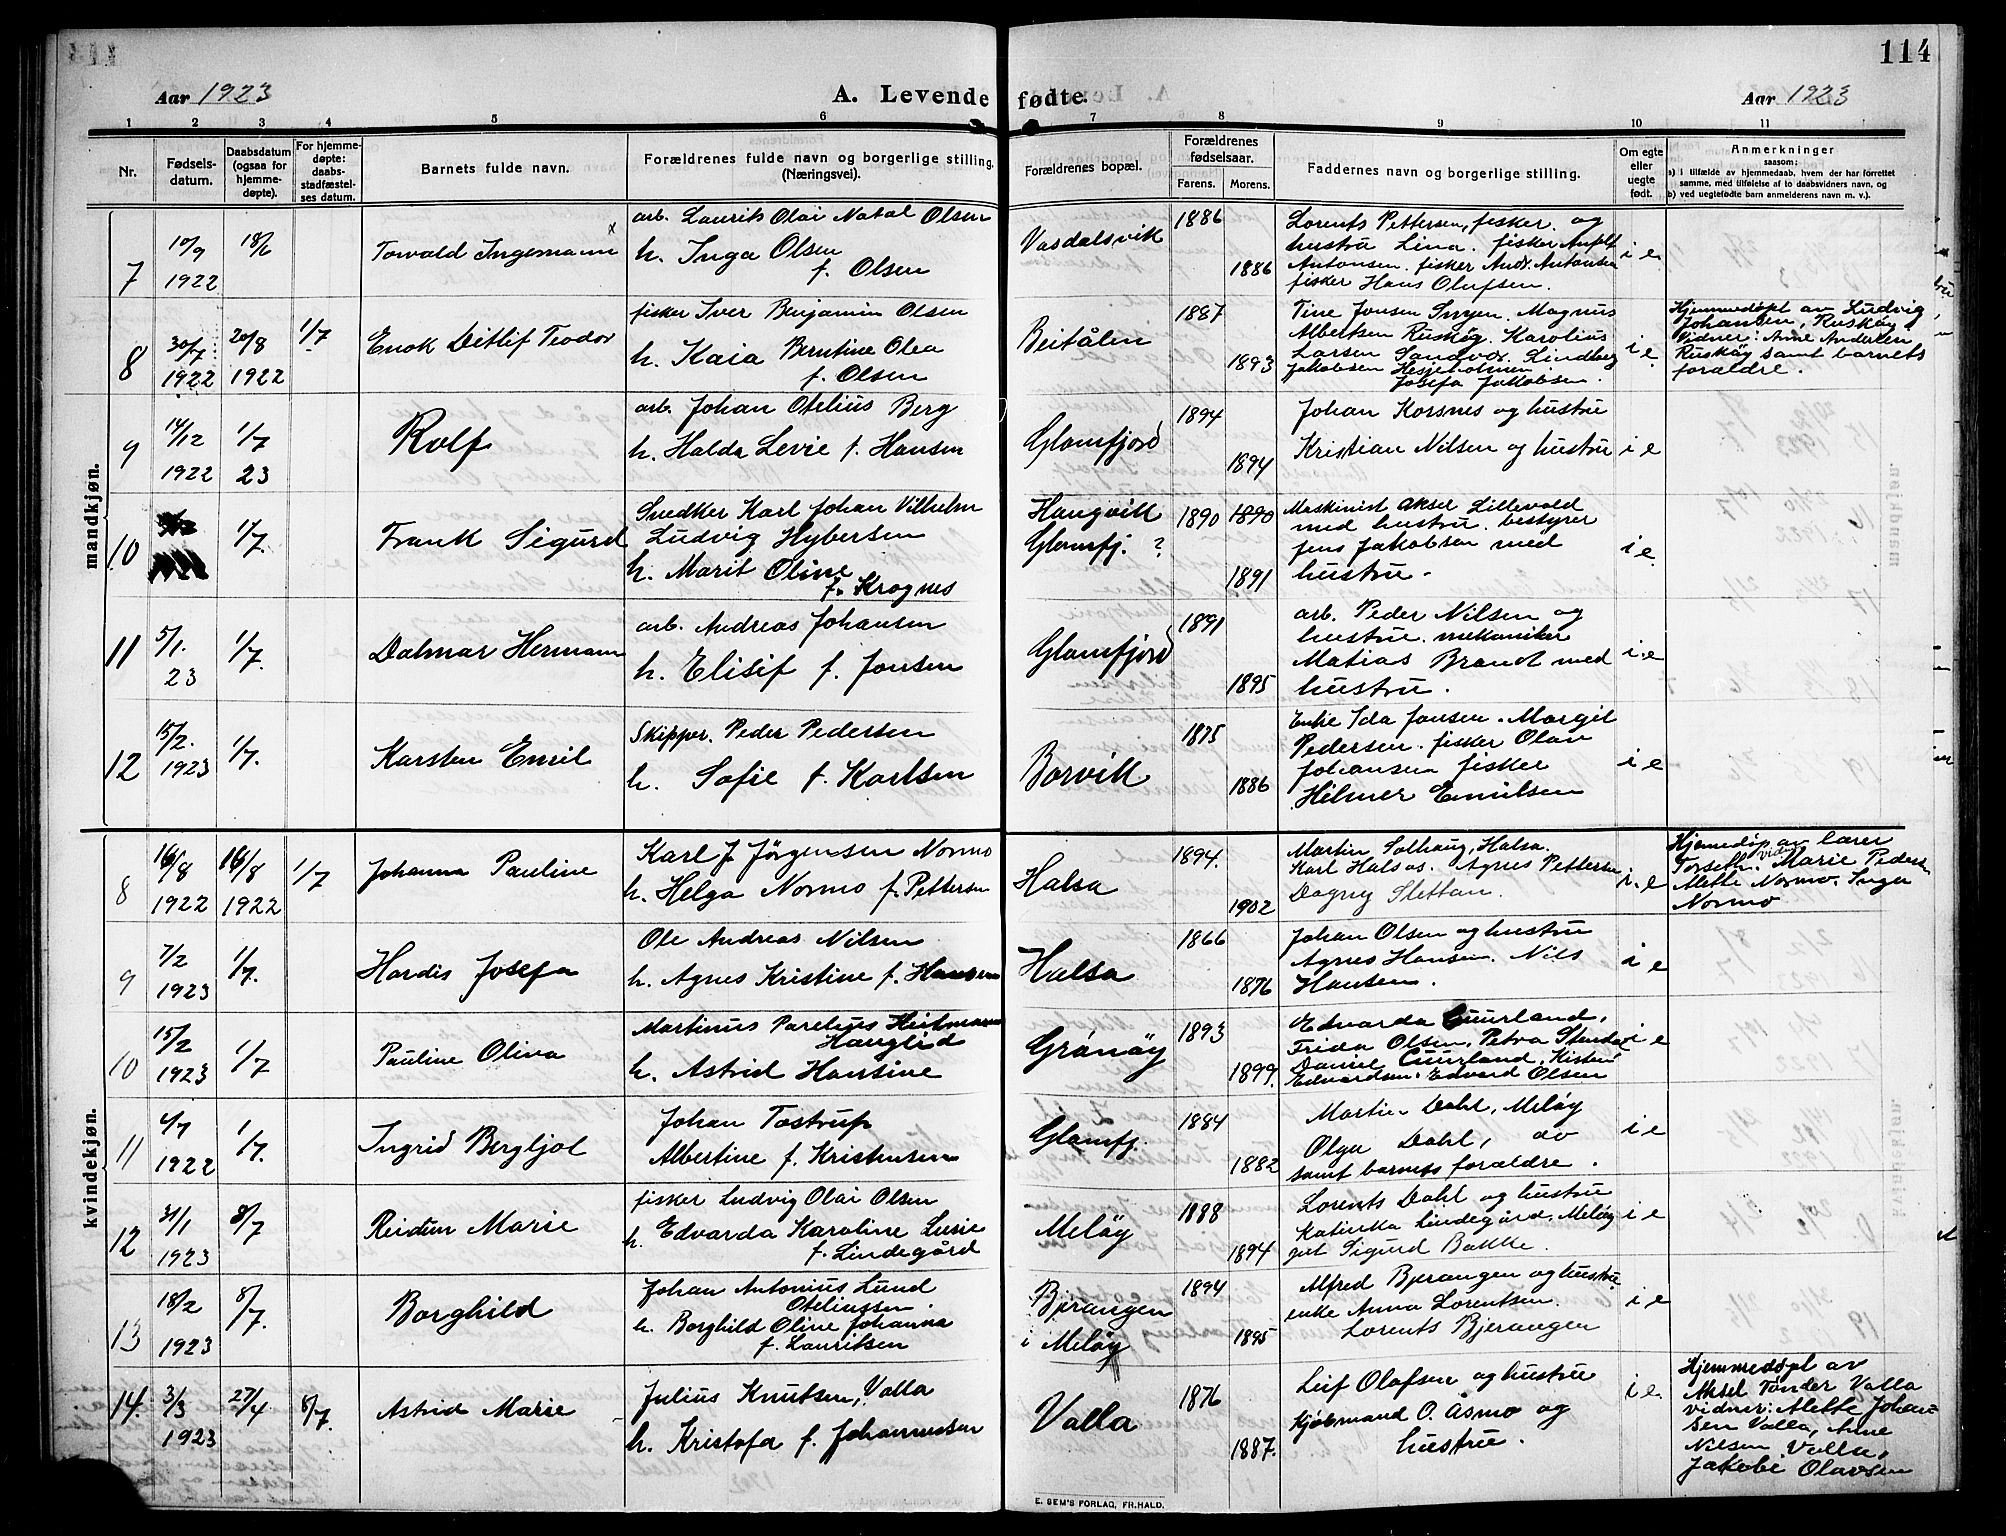 114
Aar 1923
A. Levende fødte.
Aar 1923
1 2 3 4 5 6 7 8 9 10 11
Nr.
Fødselsdatum.
Daabsdatum (ogsaa for hjemmedøpte).
For hjemmedøpte: daabsstadfæstelses datum.
Barnets fulde navn.
Forældrenes fulde navn og borgerlige stilling. (Næringsvei).
Forældrenes bopæl.
Forældrenes fødselsaar.
Farens. Morens.
Faddernes navn og borgerlige stilling.
Om egte eller uegte født.
Anmerkninger
saasom:
a) i tilfælde av hjemmedaab, hvem der har forrettet samme, med tilføielse af to daabsvidners navn, og
b) ved uegtefødte barn anmelderens navn m. v.).
mandkjøn.
7 10/9 1922 18/6 Torvald Ingemann x
arb. Laurits Olai Natal Olsen
h. Inga Olsen
f. Olsen
Vasdalsvik 1886 1886
Lorents Pettersen, fisker. og
hustru Lina. fisker
Antonsen. fisker Andr. Antonsen
fisker Hans Olufsen.
i e
8 30/7 1922 20/8 1922 1/7 Enok Ditlif Teodor
fisker Iver Benjamin Olsen
h. Kaia Berntine Olea
f. Olsen
Beitålen 1887 1893
Tine Jonsen . Magnus
Albertsen Ruskøg. Karolius
Larsen Sandvær. Lindberg
Jakobsen Kesjeholmen
Josefa Jakobsen.
i e
Hjemmedøpt av Ludvig
Johansen, Ruskøy.
Vidner: Anne Andersen
Ruskøy samt barnets
forældre.
9 14/12 1922 1/7 23 Rolf
arb. Johan Otelius Berg
h. Halda Levie f. Hansen
Glomfjord 1894 1894
Johan Korsnes og hustru
Kristian Nilsen og hustru
i e
10 1/7. Frank Sigurd
Snedker Karl Johan Vilhelm
Ludvig Hybertsen
h. Marit Oline
f. Krognes
Haugvik
Glomfj. ?
1890 1890 1891
Maskinist Aksel Lillevold
med hustru. bestyrer
Jens Jakobsen med
hustru.
i e
11 5/1. 23 1/7. Dalmar Hermann
arb. Andreas Johansen
h. Elisif f. Jonsen
Glomfjord 1891 1895
arb. Peder Nilsen og
hustru. mekaniker
Matias Brandt med
hustru.
i e
12 15/2. 1923 1/7. Karsten Emil
Skipper. Peder Pedersen
h. Sofie f. Karlsen
Borvik 1875 1886
Enke Ida Jonsen. Margit
Pedersen. fisker Olav
Johansen fisker
Hilmer Emilsen
i e
kvindekjøn.
8 16/8 1922 16/8 1922 1/7 Johanna Pauline
Karl J. Jørgensen Normo
h. Helga Normo f. Pettersen
Halsa 1894. 1902
Martin Solhaug, Halsa.
Karl Halsos. Agnes Pettersen
Dagny Slettan.
i. e
Hjemmedøp av lærer
Torseth. vidner Marie Pedersen
Alette Normo. Inger
Normo
9 7/2 1923 1/7. Hardis Josefa
Ole Andreas Nilsen
h. Agnes Kristine f. Hansen
Halsa 1866 1876
Johan Olsen og hustru
Agnes Hansen. Nils
Hansen.
i e
10 15/2 1923 1/7 Pauline Oliva
Martinus Parelius Heitmann
Hauglid
h. Astrid Hansine
Grønøy 1893 1899.
Edvarda Cuurland,
Frida Olsen, Petra
Daniel Cuurland,
Edvardsen. Edvard Olsen
i e
11 4/7 1922 1/7. Ingrid Bergljot
Johan Tostrup
Albertine f. Kristensen
Glomfj. 1884 1882
Martin Dahl, Meløy
Olga Dahl, do
samt barnets forældre.
i e
12 31/1 1923 8/7 Reidun Marie
fisker Ludvig Olai Olsen
h. Edvarda Karoline Lusie
f. Lindegård
Meløy 1888 1894
Lorents Dahl og hustru
Katinka Lindegård. Meløy
gut Sigurd Bakke.
i e
13 18/2 1923 8/7. Borghild
Johan Antonius Lund
Oteliussen.
h. Borghild Oline Johanna
f. Lauritsen
Bjerangen
i Meløy
1894 1895
Alfred Bjerangen og hustru
enke Anna Lorentsen.
Lorents Bjerangen
i e
14. 3/3 1923 27/4 8/7. Astrid Marie
Julius Knutsen, Valla
h. Kristofa f. Johannessen
Valla 1876 1887.
Leif Olafsen og hustru
kjøbmand O. Åsmo og
hustru.
i e.
Hjemmedøpt av
Aksel Tønder Valla
vidner: Alette Johan-
sen Valla, Arne
Nilsen Valla,
Jakobi Olavsen
E. SEM'S FORLAG, FR.HALD.